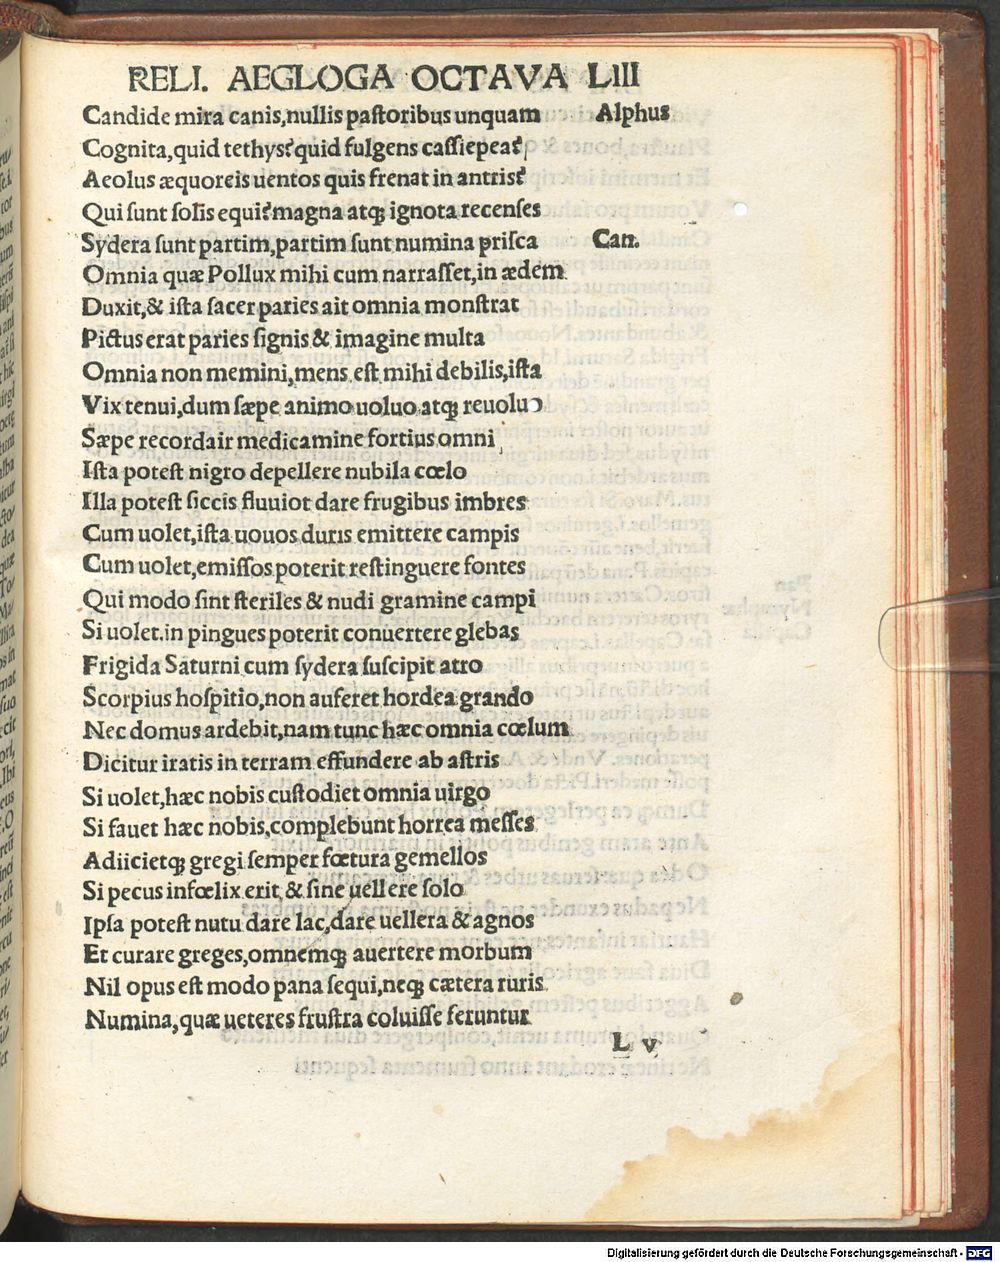 RELI. AEGLOGA OCTAVA LIII
Candide mira canis,nullis pastoribus unquam Alphus
Cognita,quid tethys?quid fulgens cassiepea?
Aeolus æquoreis uentos quis frenat in antris?
Qui sunt solis equi?magna atqꝫ ignota recenses
Sydera sunt partim,partim sunt numina prisca Can.
Omnia quæ Pollux mihi cum narrasset,in ædem
Duxit,& ista sacer paries ait omnia monstrat
Pictus erat paries signis & imagine multa
Omnia non memini,mens est mihi debilis,ista
Vix tenui,dum sæpe animo uoluo atqꝫ reuoluo
Sæpe recordair medicamine fortius omni
Ista potest nigro depellere nubila cœlo
Illa potest siccis fluuiot dare frugibus imbres
Cum uolet,ista uouos duris emittere campis
Cum uolet,emissos poterit restinguere fontes
Qui modo sint steriles & nudi gramine campi
Si uolet.in pingues poterit conuertere glebas
Frigida Saturni cum sydera suscipit atro
Scorpius hospitio,non auferet hordea grando
Nec domus ardebit,nam tunc hæc omnia cœlum
Dicitur iratis in terram effundere ab astris
Si uolet,hæc nobis custodiet omnia uirgo
Si fauet hæc nobis,complebunt horrea messes
Adiicietqꝫ gregi semper fœtura gemellos
Si pecus infœlix erit & sine uellere solo
Ipsa potest nutu dare lac,dare uellera & agnos
Et curare greges,omnemqꝫ auertere morbum
Nil opus est modo pana sequi,neqꝫ cætera ruris
Numina,quæ ueteres frustra coluisse feruntur
L v
Digitalisierung gefördert durch die Deutsche Forschungsgemeinschaft - DFG